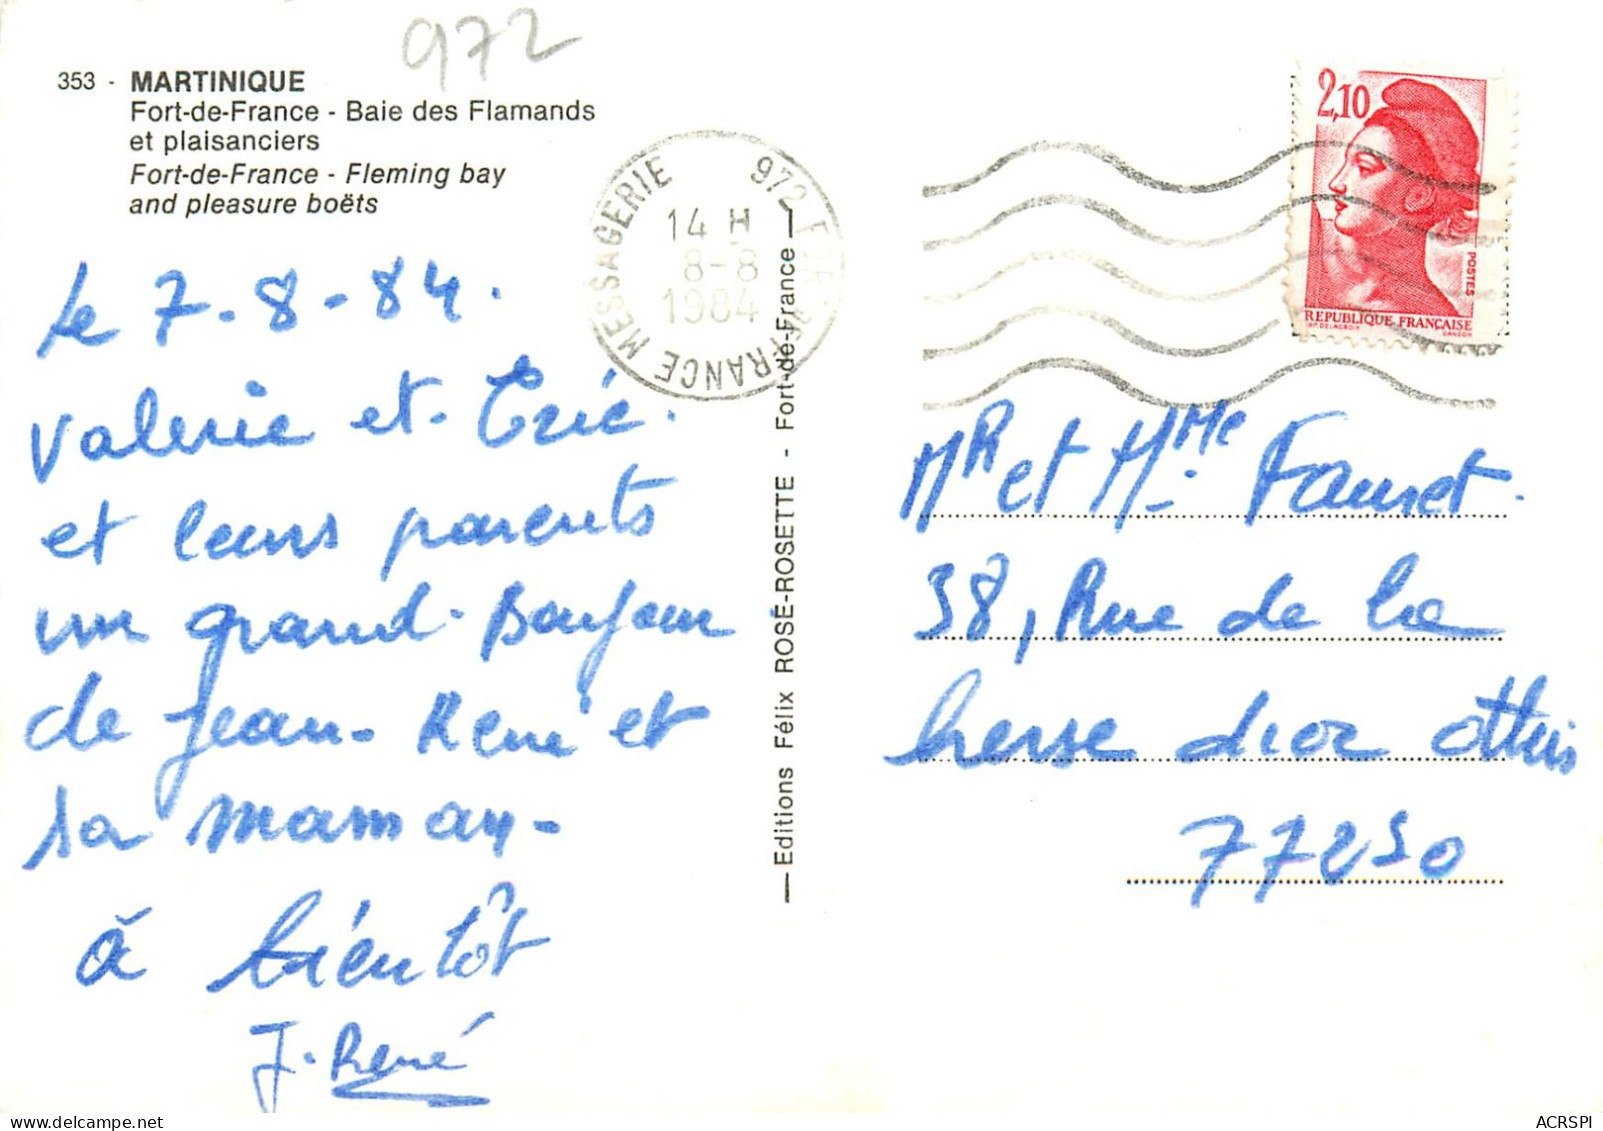 972
353 - MARTINIQUE
Fort-de-France - Baie des Flamands
et plaisanciers
Fort-de-France - Fleming bay
and pleasure boëts
le 7-8-84.
Valerie et Eric.
et leurs parents
un grand Bonjour
de Jean-René et
sa maman-
à bientôt
J. René
Editions Félix ROSE-ROSETTE - Fort-de-France
MESSAGERIE 972 FORT-DE-FRANCE
14 H
8-8
1984
2,10
POSTES
REPUBLIQUE FRANÇAISE
AP. DELACROIX GANDON
Mr et Mme Fauret.
38, Rue de la
herse d'or othis
77250
ACRSPI